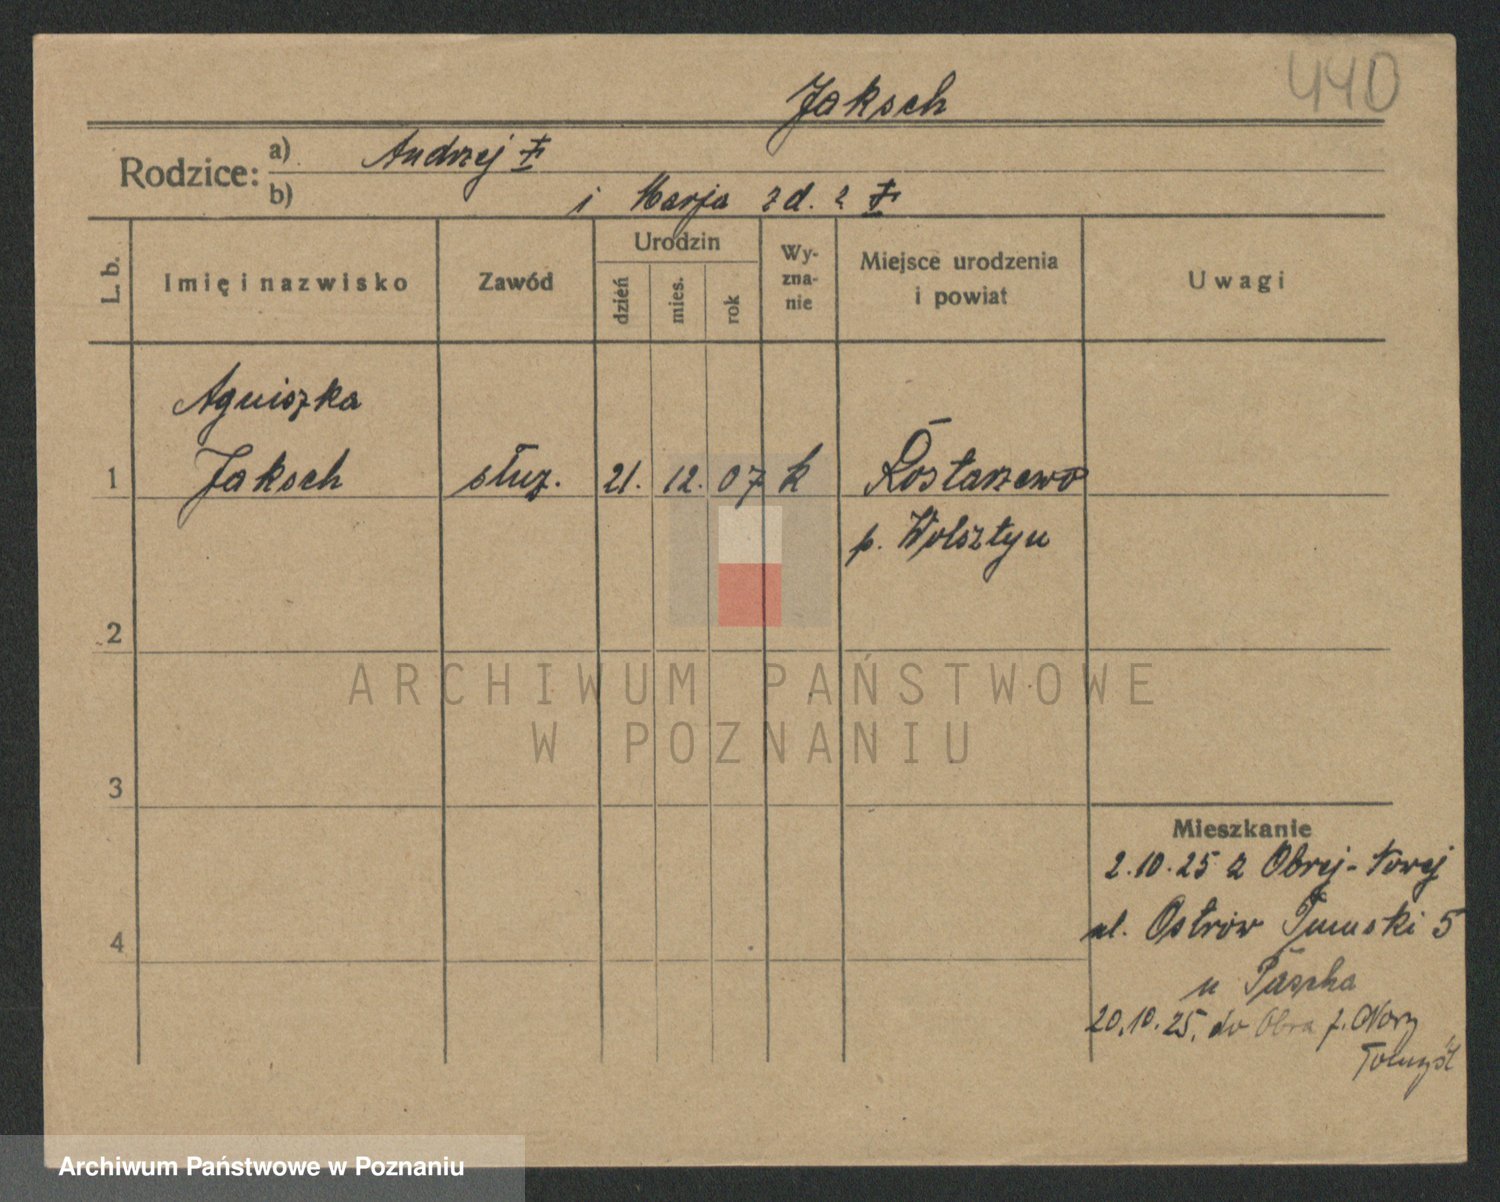 440
Jaksch
Rodzice: a) Andrzej
b) i Marja zd. ?
L. b.
Imię i nazwisko
Zawód
Urodzin
dzień
mies.
rok
Wy-
zna-
nie
Miejsce urodzenia
i powiat
Uwagi
Agniszka
1 Jaksch służ. 21. 12. 07 k Rostarzewo
p. Wolsztyn
2
3
4
Mieszkanie
2.10.25 z Obrej-
ul. Ostrów Tumski 5
u Pascha
20.10.25. do Obra p. Nowy
Tomyśl
ARCHIWUM PAŃSTWOWE
W POZNANIU
Archiwum Państwowe w Poznaniu